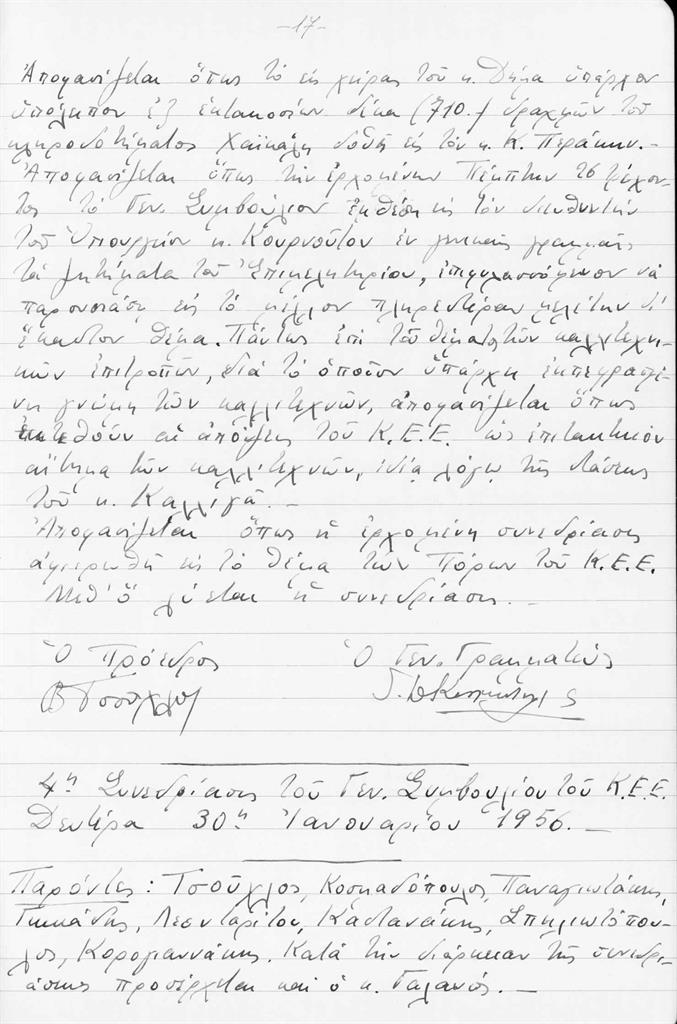 -17-
Ἀποφασίζεται ὅπως τὸ εἰς χεῖρας τοῦ κ. Θήμα ὑπάρχον
ὑπόλοιπον ἐξ ἑπτακοσίων δέκα (710.-) δραχμῶν τοῦ
κληροδοτήματος Χαϊκάλη δοθῆ εἰς τὸν κ. Κ. Περάκην.-
Ἀποφασίζεται ὅπως τὴν ἐρχομένην Πέμπτην 26 τρέχον-
τος τὸ Γεν. Συμβούλιον ἐκθέση εἰς τὸν διευθυντὴν
τοῦ Ὑπουργείου κ. Κουρνοῦτον ἐν γενικαῖς γραμμαῖς
τὰ ζητήματα τοῦ Ἐπιμελητηρίου, ἐπιφυλασσόμενον νὰ
παρουσιάση εἰς τὸ μέλλον πληρεστέραν μελέτην δι'
ἕκαστον θέμα. Πάντως ἐπὶ τοῦ θέματος τῶν καλλιτεχνι-
κῶν ἐπιτροπῶν, διὰ τὸ ὁποῖον ὑπάρχει ἐκπεφρασμέ-
νη γνώμη τῶν καλλιτεχνῶν, ἀποφασίζεται ὅπως
ἐκτεθοῦν αἱ ἀπόψεις τοῦ Κ.Ε.Ε. ὡς ἐπιτακτικὸν
αἴτημα τῶν καλλιτεχνῶν, ἰδίᾳ λόγῳ τῆς στάσεως
τοῦ κ. Καλλιγᾶ.-
Ἀποφασίζεται ὅπως ἡ ἐρχομένη συνεδρίασις
ἀφιερωθῆ εἰς τὸ θέμα τῶν Πόρων τοῦ Κ.Ε.Ε.
Μεθ' ὃ λύεται ἡ συνεδρίασις.-
Ὁ Πρόεδρος Ὁ Γεν. Γραμματεὺς
4η Συνεδρίασις τοῦ Γεν. Συμβουλίου τοῦ Κ.Ε.Ε.
Δευτέρα 30η Ἰανουαρίου 1956.-
Παρόντες: Τσοῦχλος, Κοσμαδόπουλος, Παναγιωτάκης,
Γεωργιάδης, Λεονταρίτου, Καστανάκης, Σπηλιωτόπου-
λος, Κορογιαννάκης. Κατὰ τὴν διάρκειαν τῆς συνεδρι-
άσεως προσέρχεται καὶ ὁ κ. Γαλανός.-